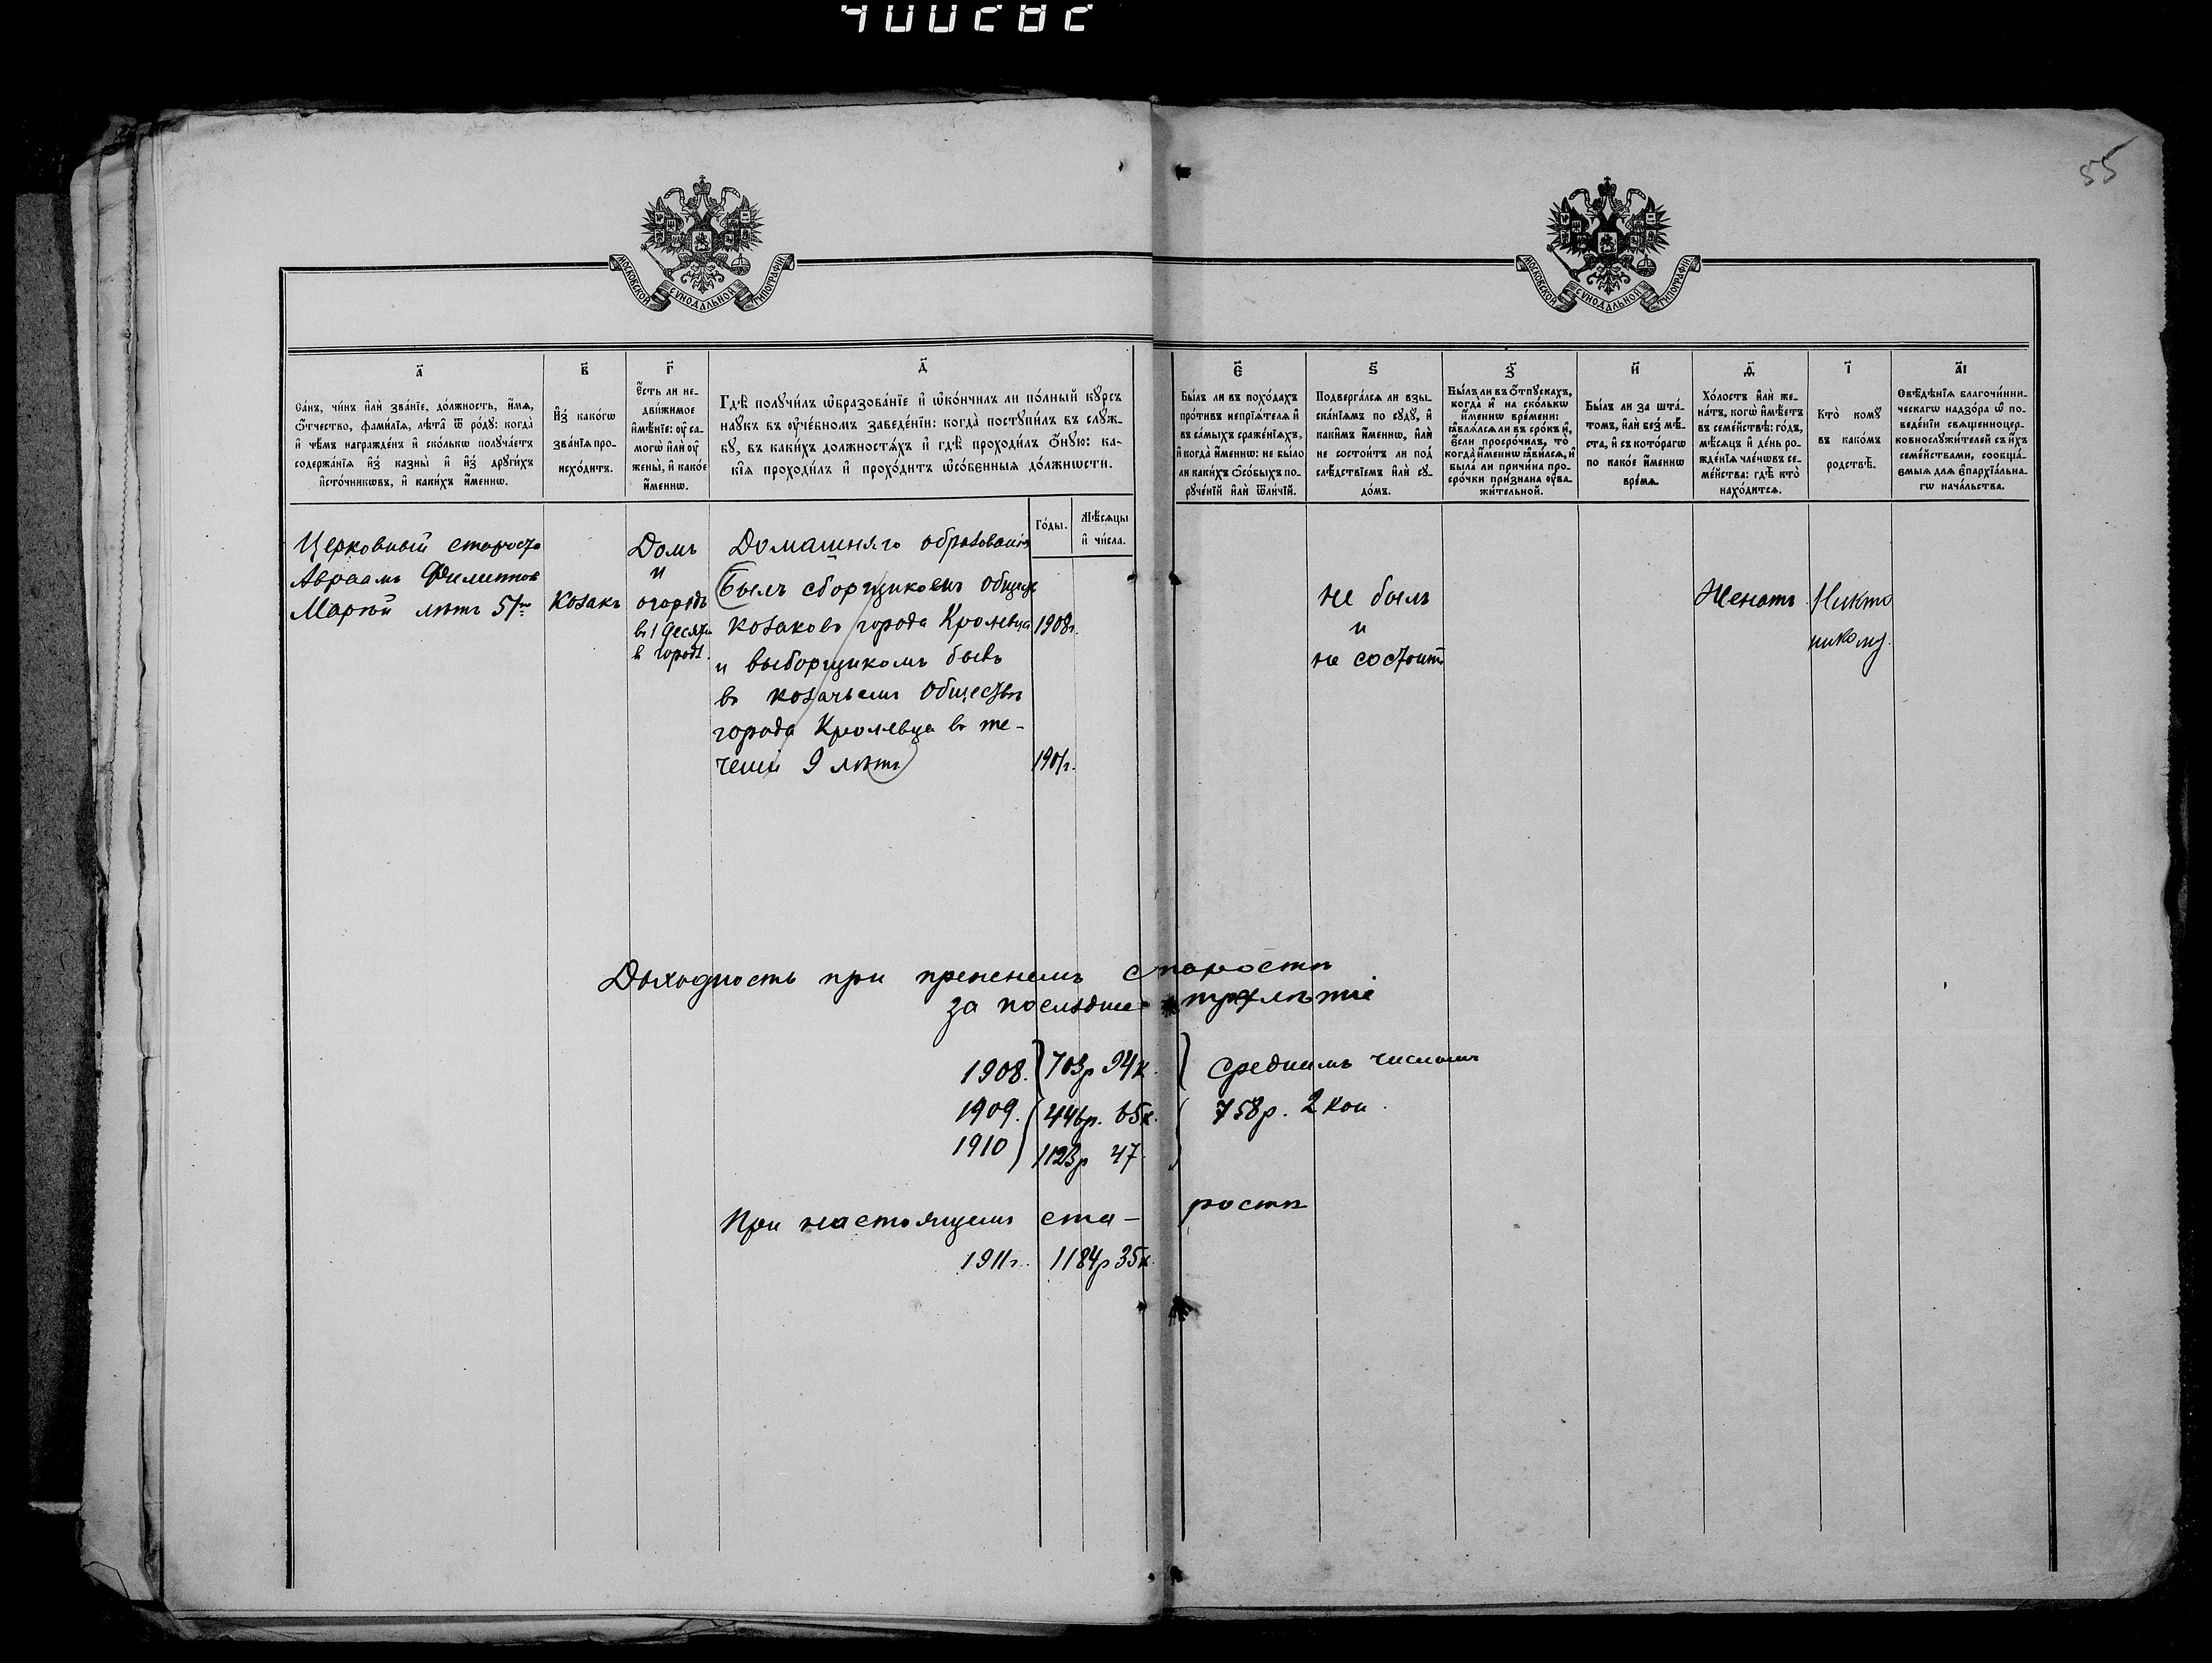 400282
55
МОСКОВСКОЙ СѴНОДАЛЬНОЙ ТИПОГРАФІИ
МОСКОВСКОЙ СѴНОДАЛЬНОЙ ТИПОГРАФІИ
а҃
Са́нъ, чи́нъ и҆лѝ зва́нїе, до́лжность, и҆́мѧ,
ѻ҆́тчество, фами́лїѧ, лѣ́та ѿ ро́дꙋ: когда̀
и҆ чѣ́мъ награжде́нъ и҆ ско́лькѡ полꙋча́етъ
содержа́нїѧ и҆з̾ казны̀ и҆ и҆з̾ дрꙋги́хъ
и҆сто́чникѡвъ, и҆ каки́хъ и҆́меннѡ.
в҃
И҆з̾ како́гѡ
зва́нїѧ про-
исхо́дитъ.
г҃
Е҆́сть ли не-
дви́жимое
и҆мѣ́нїе: оу҆ са-
могѡ̀ и҆лѝ оу҆
жены̀, и҆ како́е
и҆́меннѡ.
д҃
Гдѣ̀ полꙋчи́лъ ѡ҆бразова́нїе и҆ ѡ҆ко́нчилъ ли по́лный кꙋ́рсъ
наꙋ́къ въ оу҆че́бномъ заведе́нїи: когда̀ постꙋпи́лъ въ слꙋ́ж-
бꙋ, въ каки́хъ должностѧ́хъ и҆ гдѣ̀ проходи́лъ ѻ҆́нꙋю: ка-
кі́ѧ проходи́лъ и҆ прохо́дитъ ѡ҆со́бенныѧ до́лжнѡсти.
Го́ды.
Мѣ́сѧцы
и҆ чи́сла.
є҃
Бы́лъ ли въ похо́дахъ
про́тивъ непрїѧ́телѧ и҆
въ са́мыхъ сраже́нїѧхъ,
и҆ когда̀ и҆́меннѡ: не бы́ло
ли каки́хъ ѻ҆со́быхъ по-
рꙋче́нїй и҆лѝ ѿли́чїй.
ѕ҃
Подверга́лсѧ ли взы-
ска́нїѧмъ по сꙋдꙋ̀, и҆
каки̑мъ и҆́меннѡ, и҆лѝ
не состои́тъ ли под̾
слѣ́дствїемъ и҆лѝ сꙋ-
до́мъ.
з҃
Бы́лъ ли въ ѻ҆́тпꙋскахъ,
когда̀ и҆ на ско́лькѡ
и҆́меннѡ вре́мени:
ꙗ҆влѧ́лсѧ ли въ сро́къ и҆,
є҆́сли просро́чилъ, то̀
когда̀ и҆́меннѡ ꙗ҆ви́лсѧ, и҆
была̀ ли причи́на про-
сро́чки при́знана оу҆ва-
жи́тельной.
и҃
Бы́лъ ли за шта́-
томъ, и҆лѝ без̾ мѣ́-
ста, и҆ съ кото́рагѡ
по како́е и҆́меннѡ
вре́мѧ.
ѳ҃
Хо́лостъ и҆лѝ же-
на́тъ, когѡ̀ и҆мѣ́етъ
въ семе́йствѣ: го́дъ,
мѣ́сѧцъ и҆ де́нь ро-
жде́нїѧ чле́нѡвъ се-
ме́йства: гдѣ̀ кто̀
нахо́дитсѧ.
і҃
Кто̀ комꙋ̀
въ како́мъ
родствѣ̀.
а҃і
Свѣ́дѣнїѧ благочи́нни-
ческагѡ надзо́ра ѡ҆ по-
веде́нїи свѧщенноцер-
ковнослꙋжи́телей съ и҆́хъ
семе́йствами, сообща́-
ємыѧ длѧ є҆парxїа́льна-
гѡ нача́льства.
Церковный староста
Авраамъ Филиппов
Мартый лѣтъ 51
Козакъ
Домъ
и
огородъ
в 1 десят.
в городѣ.
Домашняго образованія
Былъ сборщикомъ общины
козаков города Кролевца
1908г.
и выборщикомъ бывъ
в козачьем обществѣ
города Кролевца в те-
ченіи 9 лѣтъ
1901г.
не былъ
и
не состоитъ
Женатъ
Никто
никому.
Доходность при прежнемъ старостѣ
за последнее трехлѣтіе
1908. 703р 94к. Среднимъ числомъ
1909. 446р. 65к. 758р. 2 коп.
1910 1123р 47
При настоящем ста-ростѣ
1911г. 1184р 35к.